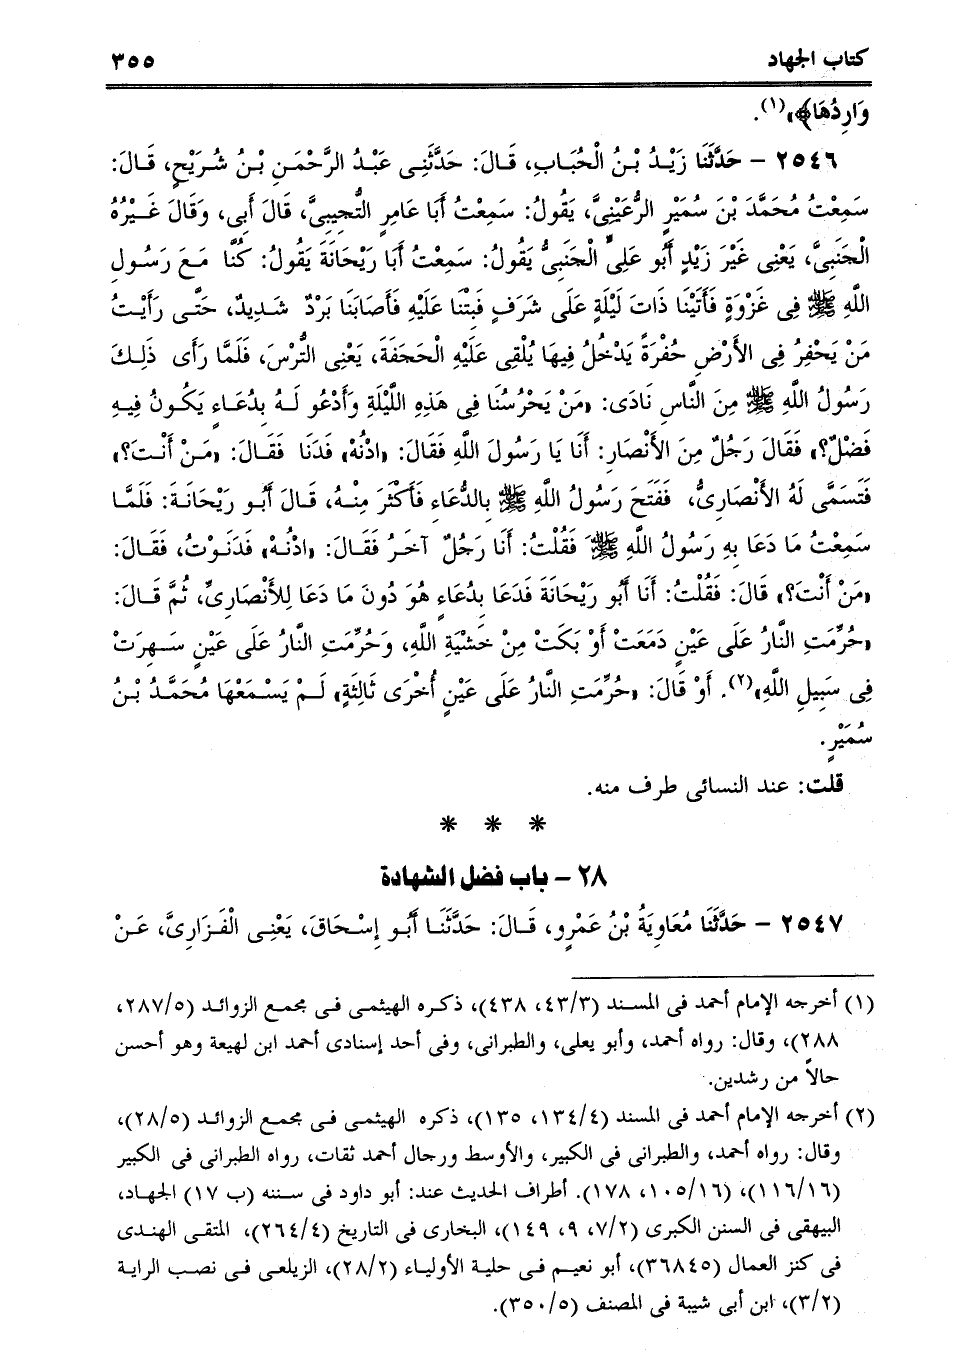 كتاب الجهاد ٣٥٥
وَارِدُهَا﴾»(١).
٢٥٤٦ – حَدَّثَنَا زَيْدُ بْنُ الْحُبَابِ، قَالَ: حَدَّثَنِى عَبْدُ الرَّحْمَنِ بْنُ شُرَيْحٍ، قَالَ:
سَمِعْتُ مُحَمَّدَ بْنَ سُمَيْرٍ الرُّعَيْنِىَّ، يَقُولُ: سَمِعْتُ أَبَا عَامِرٍ التُّجِيبِىَّ، قَالَ أَبِى، وَقَالَ غَيْرُهُ
الْجَنَبِىَّ، يَعْنِى غَيْرَ زَيْدٍ أَبُو عَلِىٍّ الْجَنَبِىُّ يَقُولُ: سَمِعْتُ أَبَا رَيْحَانَةَ يَقُولُ: كُنَّا مَعَ رَسُولِ
اللَّهِ ﷺ فِى غَزْوَةٍ فَأَتَيْنَا ذَاتَ لَيْلَةٍ عَلَى شَرَفٍ فَبِتْنَا عَلَيْهِ فَأَصَابَنَا بَرْدٌ شَدِيدٌ، حَتَّى رَأَيْتُ
مَنْ يَحْفِرُ فِى الأَرْضِ حُفْرَةً يَدْخُلُ فِيهَا يُلْقِى عَلَيْهِ الْحَجَفَةَ، يَعْنِى التُّرْسَ، فَلَمَّا رَأَى ذَلِكَ
رَسُولُ اللَّهِ ﷺ مِنَ النَّاسِ نَادَى: «مَنْ يَحْرُسُنَا فِى هَذِهِ اللَّيْلَةِ وَأَدْعُو لَهُ بِدُعَاءٍ يَكُونُ فِيهِ
فَضْلٌ؟» فَقَالَ رَجُلٌ مِنَ الأَنْصَارِ: أَنَا يَا رَسُولَ اللَّهِ فَقَالَ: «ادْنُهْ» فَدَنَا فَقَالَ: «مَنْ أَنْتَ؟»
فَتَسَمَّى لَهُ الأَنْصَارِىُّ، فَفَتَحَ رَسُولُ اللَّهِ ﷺ بِالدُّعَاءِ فَأَكْثَرَ مِنْهُ، قَالَ أَبُو رَيْحَانَةَ: فَلَمَّا
سَمِعْتُ مَا دَعَا بِهِ رَسُولُ اللَّهِ ﷺ فَقُلْتُ: أَنَا رَجُلٌ آخَرُ فَقَالَ: «ادْنُهْ» فَدَنَوْتُ، فَقَالَ:
«مَنْ أَنْتَ؟» قَالَ: فَقُلْتُ: أَنَا أَبُو رَيْحَانَةَ فَدَعَا بِدُعَاءٍ هُوَ دُونَ مَا دَعَا لِلأَنْصَارِىِّ، ثُمَّ قَالَ:
«حُرِّمَتِ النَّارُ عَلَى عَيْنٍ دَمَعَتْ أَوْ بَكَتْ مِنْ خَشْيَةِ اللَّهِ، وَحُرِّمَتِ النَّارُ عَلَى عَيْنٍ سَهِرَتْ
فِى سَبِيلِ اللَّهِ»(٢). أَوْ قَالَ: «حُرِّمَتِ النَّارُ عَلَى عَيْنٍ أُخْرَى ثَالِثَةٍ» لَمْ يَسْمَعْهَا مُحَمَّدُ بْنُ
سُمَيْرٍ.
قلت: عند النسائى طرف منه.
* * *
٢٨ – باب فضل الشهادة
٢٥٤٧ – حَدَّثَنَا مُعَاوِيَةُ بْنُ عَمْرٍو، قَالَ: حَدَّثَنَا أَبُو إِسْحَاقَ، يَعْنِى الْفَزَارِىَّ، عَنْ
(١) أخرجه الإمام أحمد فى المسند (٤٣/٣، ٤٣٨)، ذكره الهيثمى فى مجمع الزوائد (٢٨٧/٥،
٢٨٨)، وقال: رواه أحمد، وأبو يعلى، والطبرانى، وفى أحد إسنادى أحمد ابن لهيعة وهو أحسن
حالاً من رشدين.
(٢) أخرجه الإمام أحمد فى المسند (١٣٤/٤، ١٣٥)، ذكره الهيثمى فى مجمع الزوائد (٢٨/٥)،
وقال: رواه أحمد، والطبرانى فى الكبير، والأوسط ورجال أحمد ثقات، رواه الطبرانى فى الكبير
(١١٦/١٦)، (١٠٥/١٦، ١٧٨). أطراف الحديث عند: أبو داود فى سننه (ب ١٧) الجهاد،
البيهقى فى السنن الكبرى (٧/٢، ٩، ١٤٩)، البخارى فى التاريخ (٢٦٤/٤)، المتقى الهندى
فى كنز العمال (٣٦٨٤٥)، أبو نعيم فى حلية الأولياء (٢٨/٢)، الزيلعى فى نصب الراية
(٣/٢)، ابن أبى شيبة فى المصنف (٣٥٠/٥).